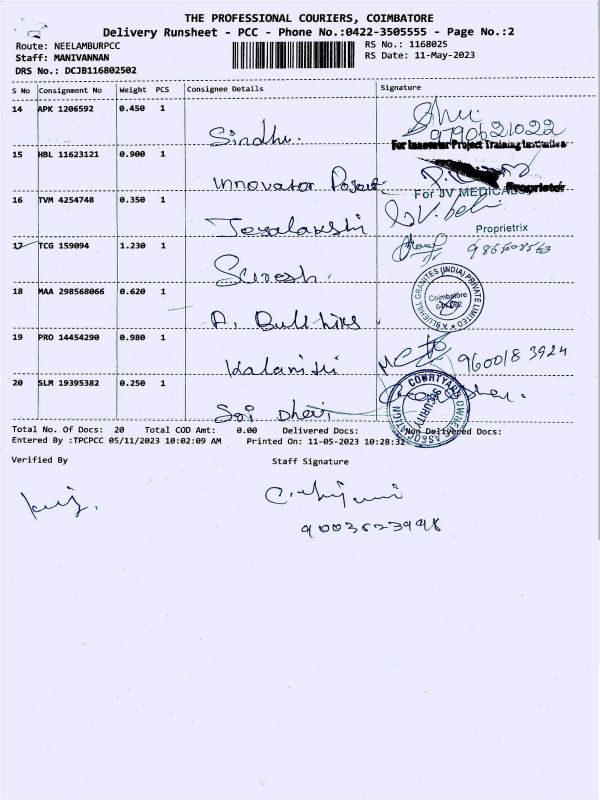 THE PROFESSIONAL COURIERS, COIMBATORE
Delivery Runsheet - PCC - Phone No.:0422-3505555 - Page No.:2
Route: NEELAMBURPCC RS No.: 1168025
Staff: MANIVANNAN RS Date: 11-May-2023
DRS No.: DCJB116802502
S No Consignment No Weight PCS Consignee Details Signature
14 APK 1206592 0.450 1
Sindhu. 9790621022
For Innovator Project Training Institution
15 HBL 11623121 0.900 1
Innovator Proprietor
For JV MEDICALS
16 TVM 4254748 0.350 1
Proprietrix
17 TCG 159094 1.230 1
Suresh.
18 MAA 298568066 0.620 1
BLUEHILL GRANITES (INDIA) PRIVATE LIMITED
Coimbatore
19 PRO 14454290 0.980 1
9600183924
20 SLM 19395382 0.250 1
COURTYARD OWNERS ASSOCIATION
SECURITY
Total No. Of Docs: 20 Total COD Amt: 0.00 Delivered Docs: Non Delivered Docs:
Entered By :TPCPCC 05/11/2023 10:02:09 AM Printed On: 11-05-2023 10:28:32
Verified By Staff Signature